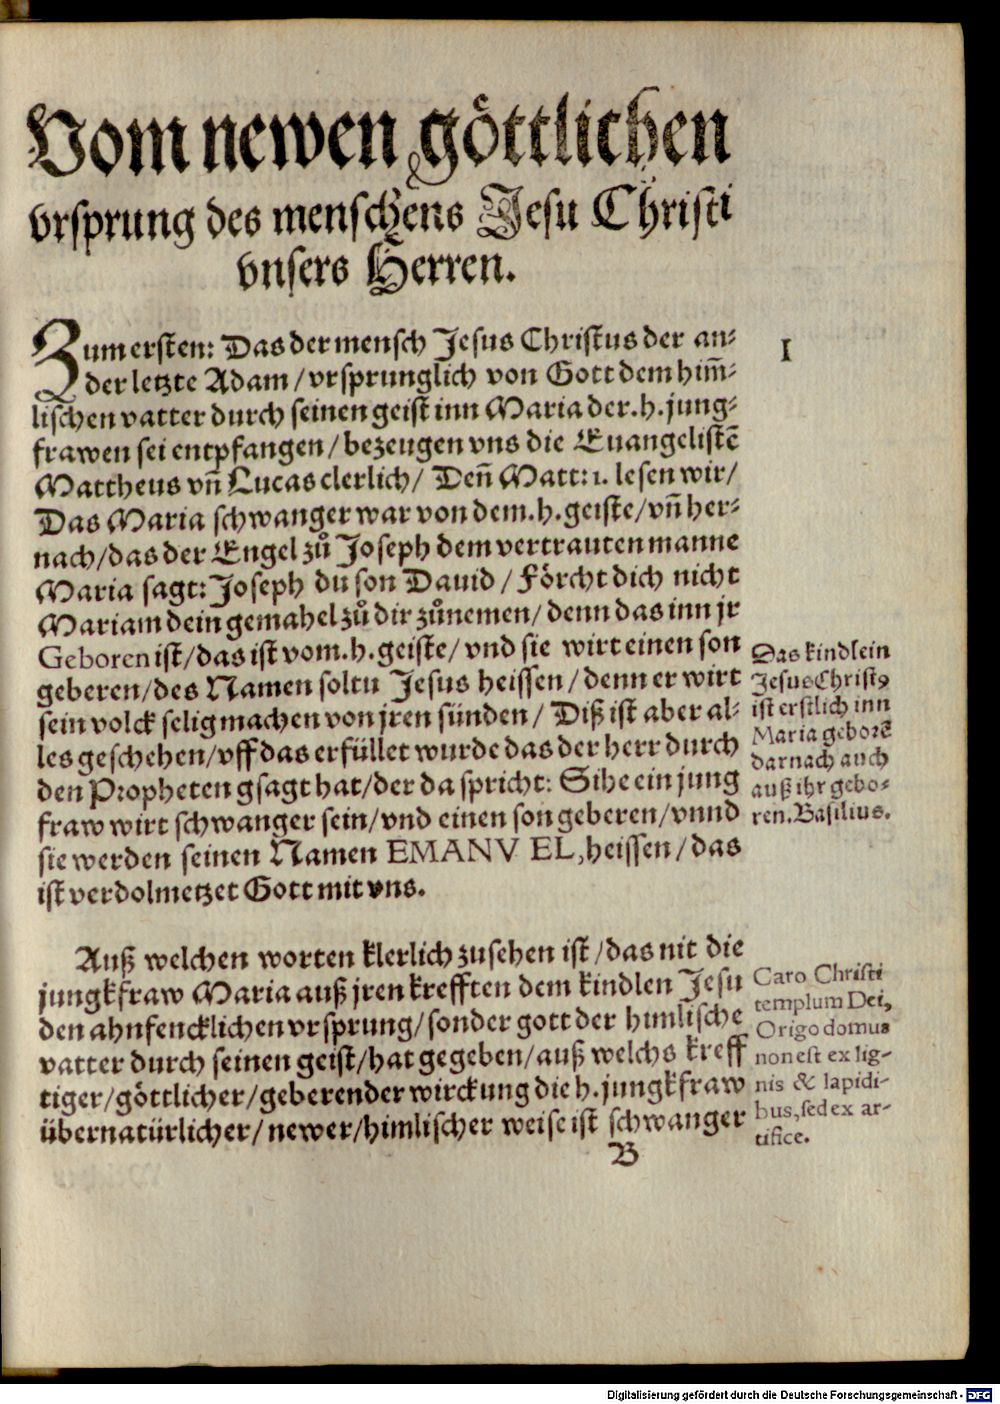 Vom newen göttlichen
vrsprung des menschens Jesu Christi
vnsers Herren.
Zum ersten: Das der mensch Jesus Christus der an-
der letzte Adam / vrsprunglich von Gott dem him̄-
lischen vatter durch seinen geist inn Maria der .h. jung-
frawen sei entpfangen / bezeugen vns die Euangelistē
Mattheus vn̄ Lucas clerlich / Den̄ Matt: 1. lesen wir /
Das Maria schwanger war von dem .h. geiste / vn̄ her-
nach / das der Engel zů Joseph dem vertrauten manne
Maria sagt: Joseph du son Dauid / Förcht dich nicht
Mariam dein gemahel zů dir zůnemen / denn das inn jr
Geboren ist / das ist vom .h. geiste / vnd sie wirt einen son
geberen / des Namen soltu Jesus heissen / denn er wirt
sein volck selig machen von jren sünden / Diß ist aber al-
les geschehen / vff das erfüllet wurde das der herr durch
den Propheten gsagt hat / der da spricht: Sihe ein jung
fraw wirt schwanger sein / vnd einen son geberen / vnnd
sie werden seinen Namen EMANV EL, heissen / das
ist verdolmetzet Gott mit vns.
I
Das kindlein
Jesus Christꝰ
ist erstlich inn
Maria geborē
darnach auch
auß ihr gebo-
ren. Basilius.
Auß welchen worten klerlich zusehen ist / das nit die
jungkfraw Maria auß jren krefften dem kindlen Jesu
den ahnfencklichen vrsprung / sonder gott der himlische
vatter durch seinen geist / hat gegeben / auß welchs kreff
tiger / göttlicher / geberender wirckung die h. jungkfraw
übernatürlicher / newer / himlischer weise ist schwanger
Caro Christi
templum Dei,
Origo domus
non est ex lig-
nis & lapidi-
bus, sed ex ar-
tifice.
B
Digitalisierung gefördert durch die Deutsche Forschungsgemeinschaft - DFG